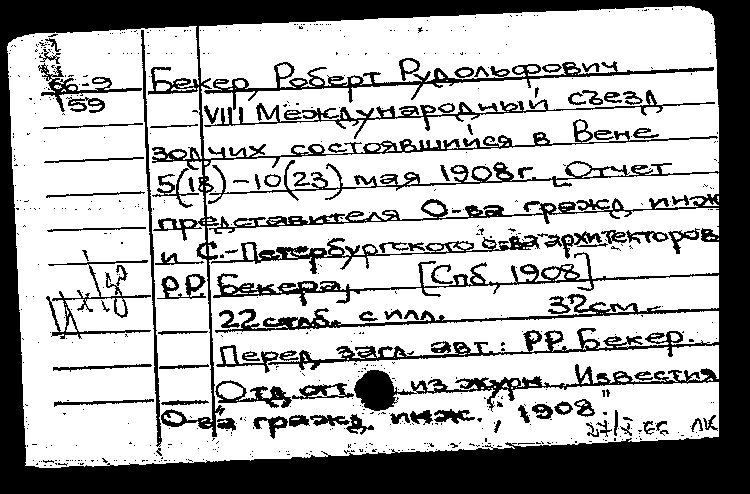 66-9
59
Бекер, Роберт Рудольфович
VIII Международный съезд
зодчих, состоявшийся в Вене
5(18)-10(23) мая 1908г. [Отчет
представителя О-ва гражд. инж
и С.-Петербургского о-ва архитекторов
Р.Р. Бекера]. [Спб., 1908].
22 стлб. с илл. 32см.-
Перед загл. авт.: Р.Р. Бекер.
Отд. отт. из журн. „Известия
О-ва гражд. инж.", 1908."
27/X-66 ЛК